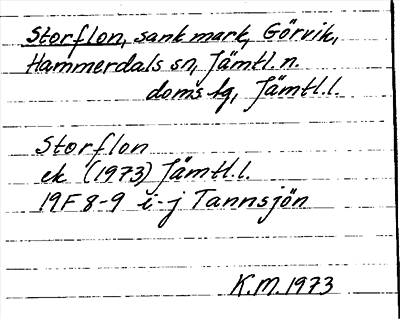 Storflon, sank mark, Görvik,
Hammerdals sn, Jämtl. n.
doms lg, Jämtl. l.
Storflon
ek (1973) Jämtl. l.
19F 8-9 i-j Tannsjön
K.M. 1973